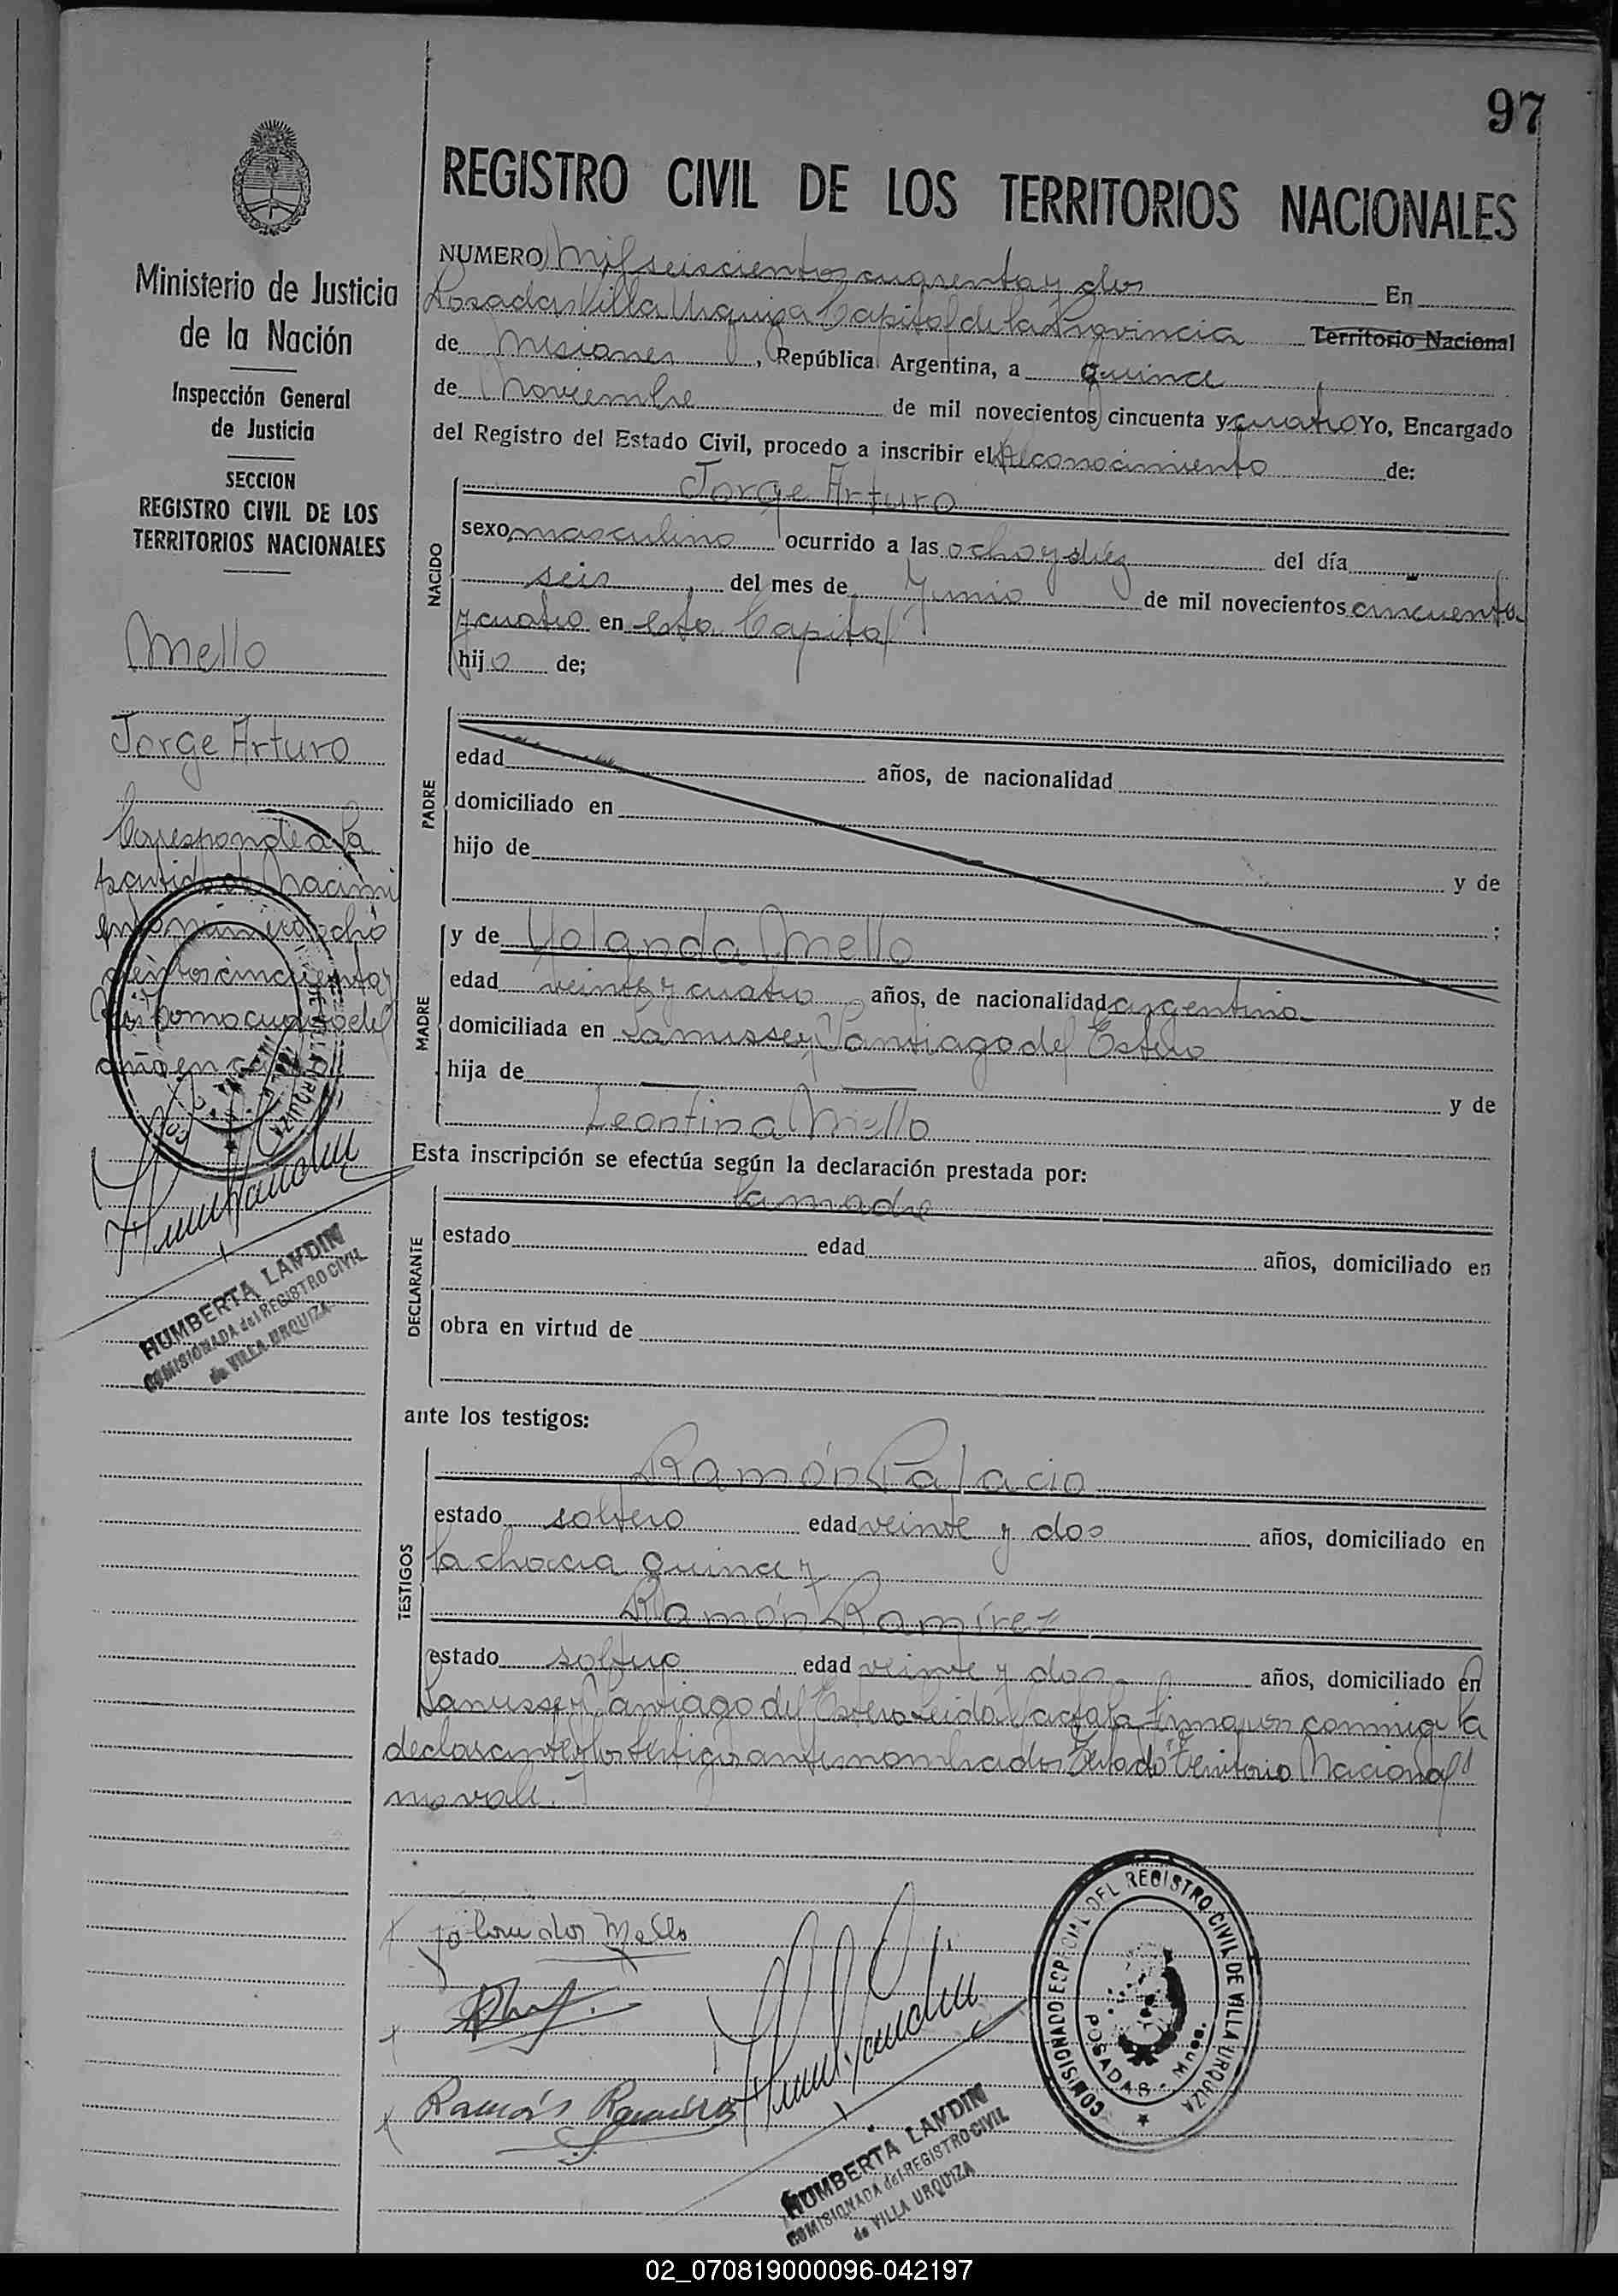 97
REGISTRO CIVIL DE LOS TERRITORIOS NACIONALES
Ministerio de Justicia
de la Nación
Inspección General
de Justicia
SECCION
REGISTRO CIVIL DE LOS
TERRITORIOS NACIONALES
Mello
Jorge Arturo
Corresponde a la
partida de Nacimi
ento número ocho
cientos cincuenta y
tomo cuarto del
año en
HUMBERTA LANDIN
COMISIONADA del REGISTRO CIVIL
de VILLA URQUIZA
NUMERO Mil seiscientos cuarenta y dos En
Posadas Villa Urquiza Capital de la Provincia Territorio Nacional
de Misiones, República Argentina, a quince
de Noviembre de mil novecientos cincuenta y cuatro Yo, Encargado
del Registro del Estado Civil, procedo a inscribir el Reconocimiento de:
NACIDO
Jorge Arturo
sexo masculino ocurrido a las ocho y diez del día
seis del mes de Junio de mil novecientos cincuenta
y cuatro en esta Capital
hijo de;
PADRE
edad años, de nacionalidad
domiciliado en
hijo de y de
;
MADRE
y de Yolanda Mello
edad veinte y cuatro años, de nacionalidad argentina
domiciliada en Lanusse y Santiago del Estero
hija de y de
Leontina Mello
Esta inscripción se efectúa según la declaración prestada por:
DECLARANTE
la madre
estado edad años, domiciliado en
obra en virtud de
ante los testigos:
TESTIGOS
Ramón Palacio
estado soltero edad veinte y dos años, domiciliado en
la chacra quince y
Ramón Ramírez
estado soltero edad veinte y dos años, domiciliado en
Lanusse y Santiago del Estero Leida el acta la firmaron conmigo la
declarante y los testigos antes nombrados Testado "Territorio Nacional"
no vale.
Yolanda Mello
Ramón Ramírez
HUMBERTA LANDIN
COMISIONADA del REGISTRO CIVIL
de VILLA URQUIZA
COMISIONADO ESPECIAL DEL REGISTRO CIVIL DE VILLA URQUIZA
POSADAS - Mnes.
02_070819000096-042197